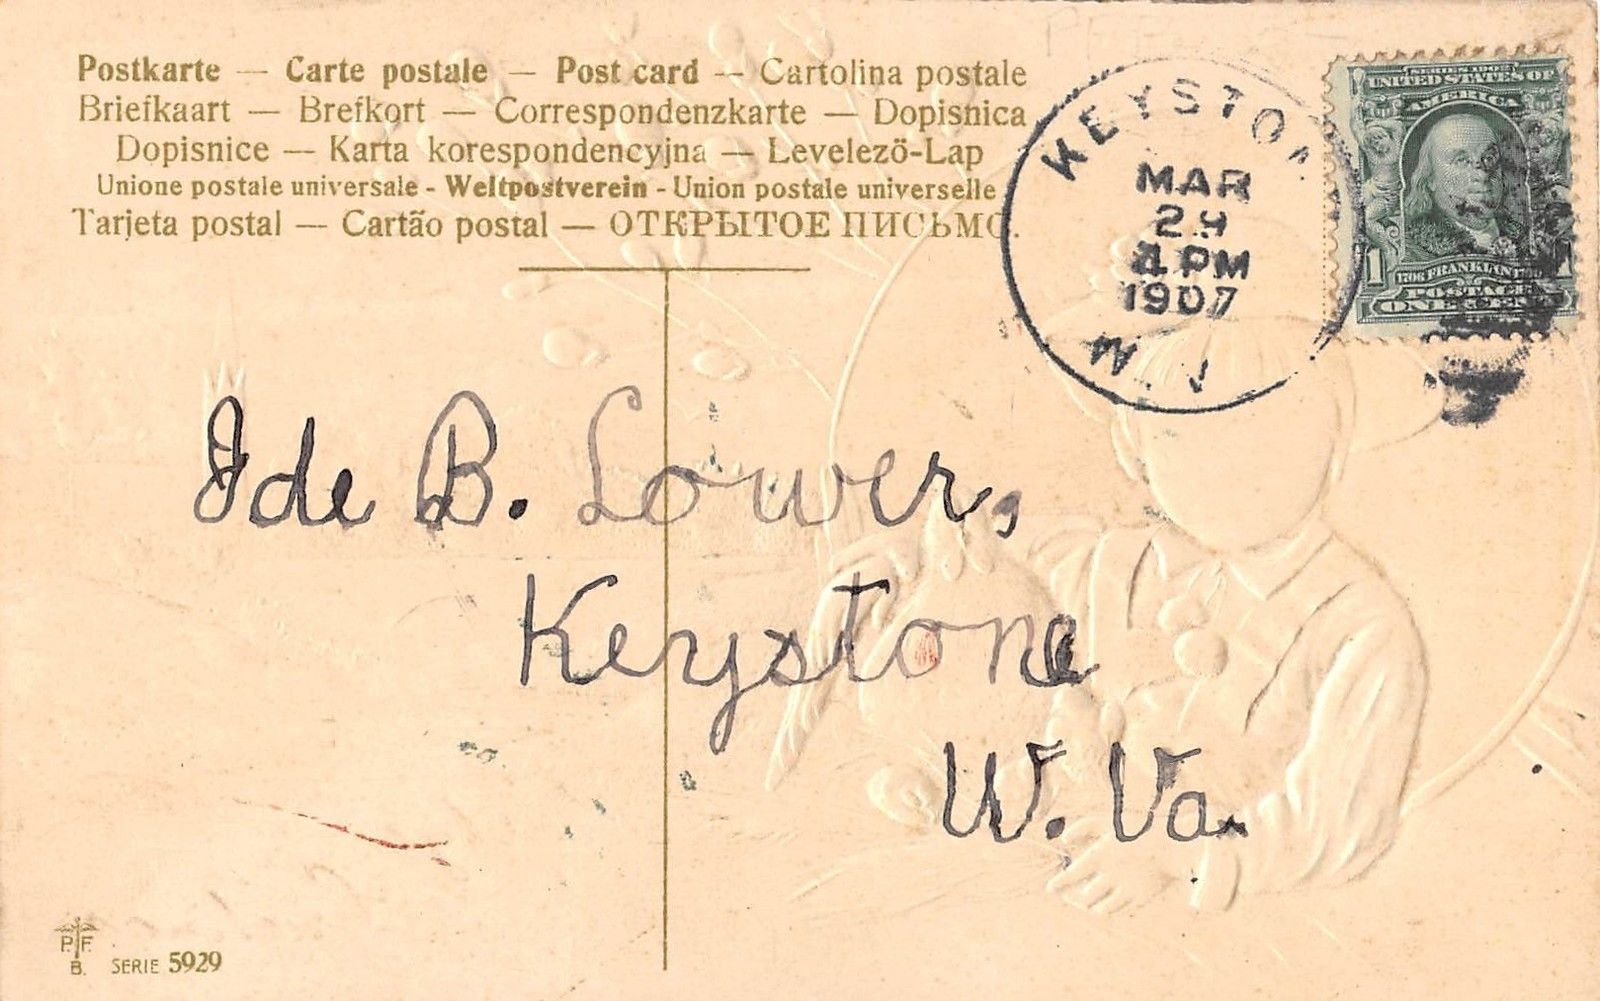 Postkarte — Carte postale — Post card — Cartolina postale
Briefkaart — Brefkort — Correspondenzkarte — Dopisnica
Dopisnice — Karta korespondencyjna — Levelező-Lap
Unione postale universale - Weltpostverein - Union postale universelle
Tarjeta postal — Cartão postal — ОТКРЫТОЕ ПИСЬМО.
KEYSTON
MAR
29
4 PM
1907
W.
SERIES 1902
UNITED STATES OF
AMERICA
1
1706 FRANKLIN 1790
POSTAGE
ONE CENT
Ide B. Lower,
Keystone
W. Va.
P. F.
B.
SERIE 5929